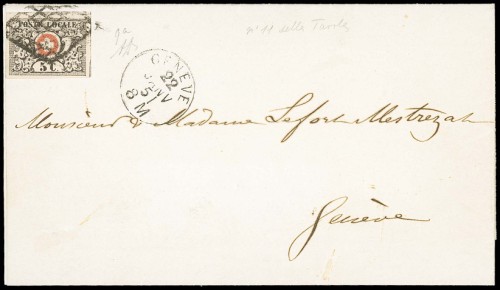 POSTE LOCALE
5 C.
n° 11 della Tavola
GENÈVE
22
JANV
5
8 M
Monsieur & Madame Lefort Mestrezat
Genève